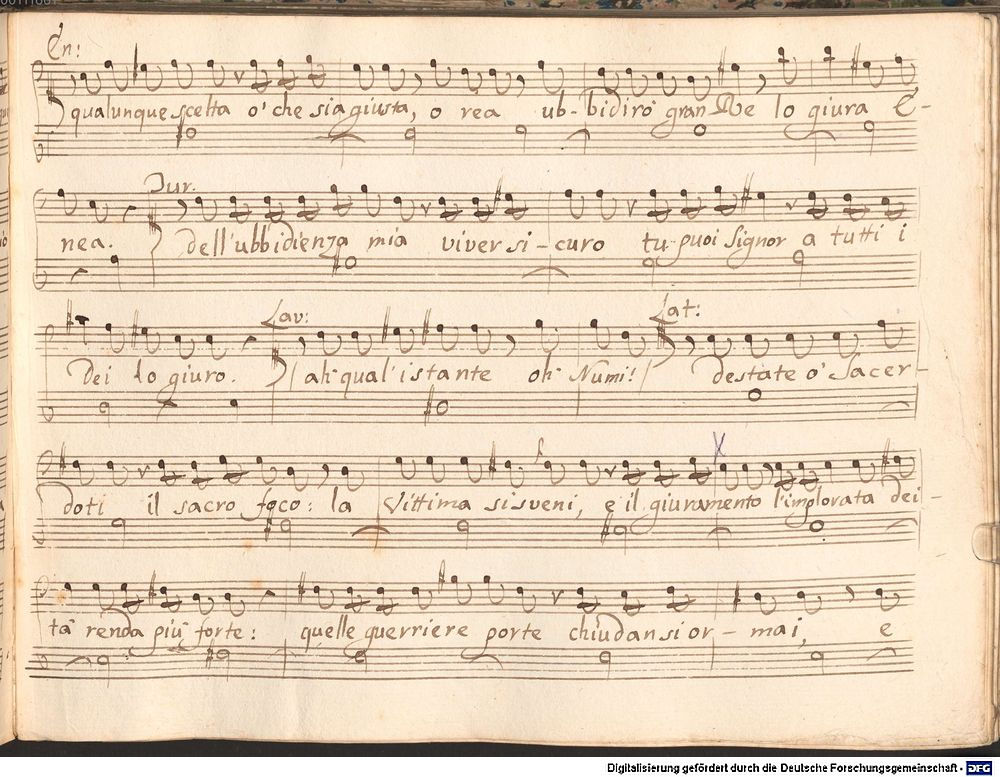 En:
qualunque scelta o' che sia giusta, o rea ub-bidirò gran Re lo giura E-
Tur.
nea. dell'ubbidienza mia viver si-curo tu puoi Signor a tutti i
Lav: Lat:
Dei lo giuro. ah qual'istante oh Numi! destate o' Sacer-
doti il sacro foco: la Vittima si sveni, e il giuramento l'implorata dei-
tà renda più forte: quelle guerriere porte chiudansi or-mai, e
Digitalisierung gefördert durch die Deutsche Forschungsgemeinschaft - DFG